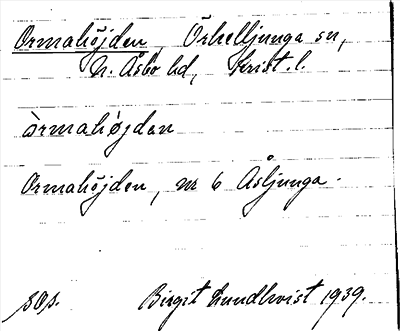 Ormahöjden, Örkelljunga sn,
N. Åsbo hd, Krist. l.
òrmahö̀jdɘn
Ormahöjden, nr 6 Åsljunga.
sOp. Birgit Lundkvist 1939.